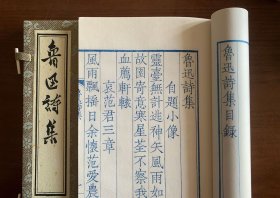 魯迅詩集目錄
魯迅詩集
自題小像
靈臺無計逃神矢風雨如
故園寄意寒星荃不察我
血薦軒轅
哀范君三章
風雨飄搖日余懷范愛農
魯迅詩集